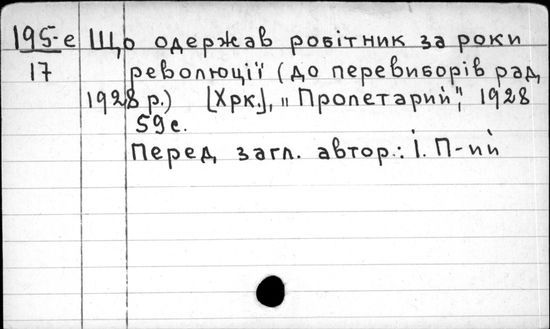 195-е Що одержав робітник за роки
17 революції (до перевиборів рад,
1928 р.) [Хрк.], „Пролетарий", 1928
59 с.
Перед загл. автор.: І. П-ий